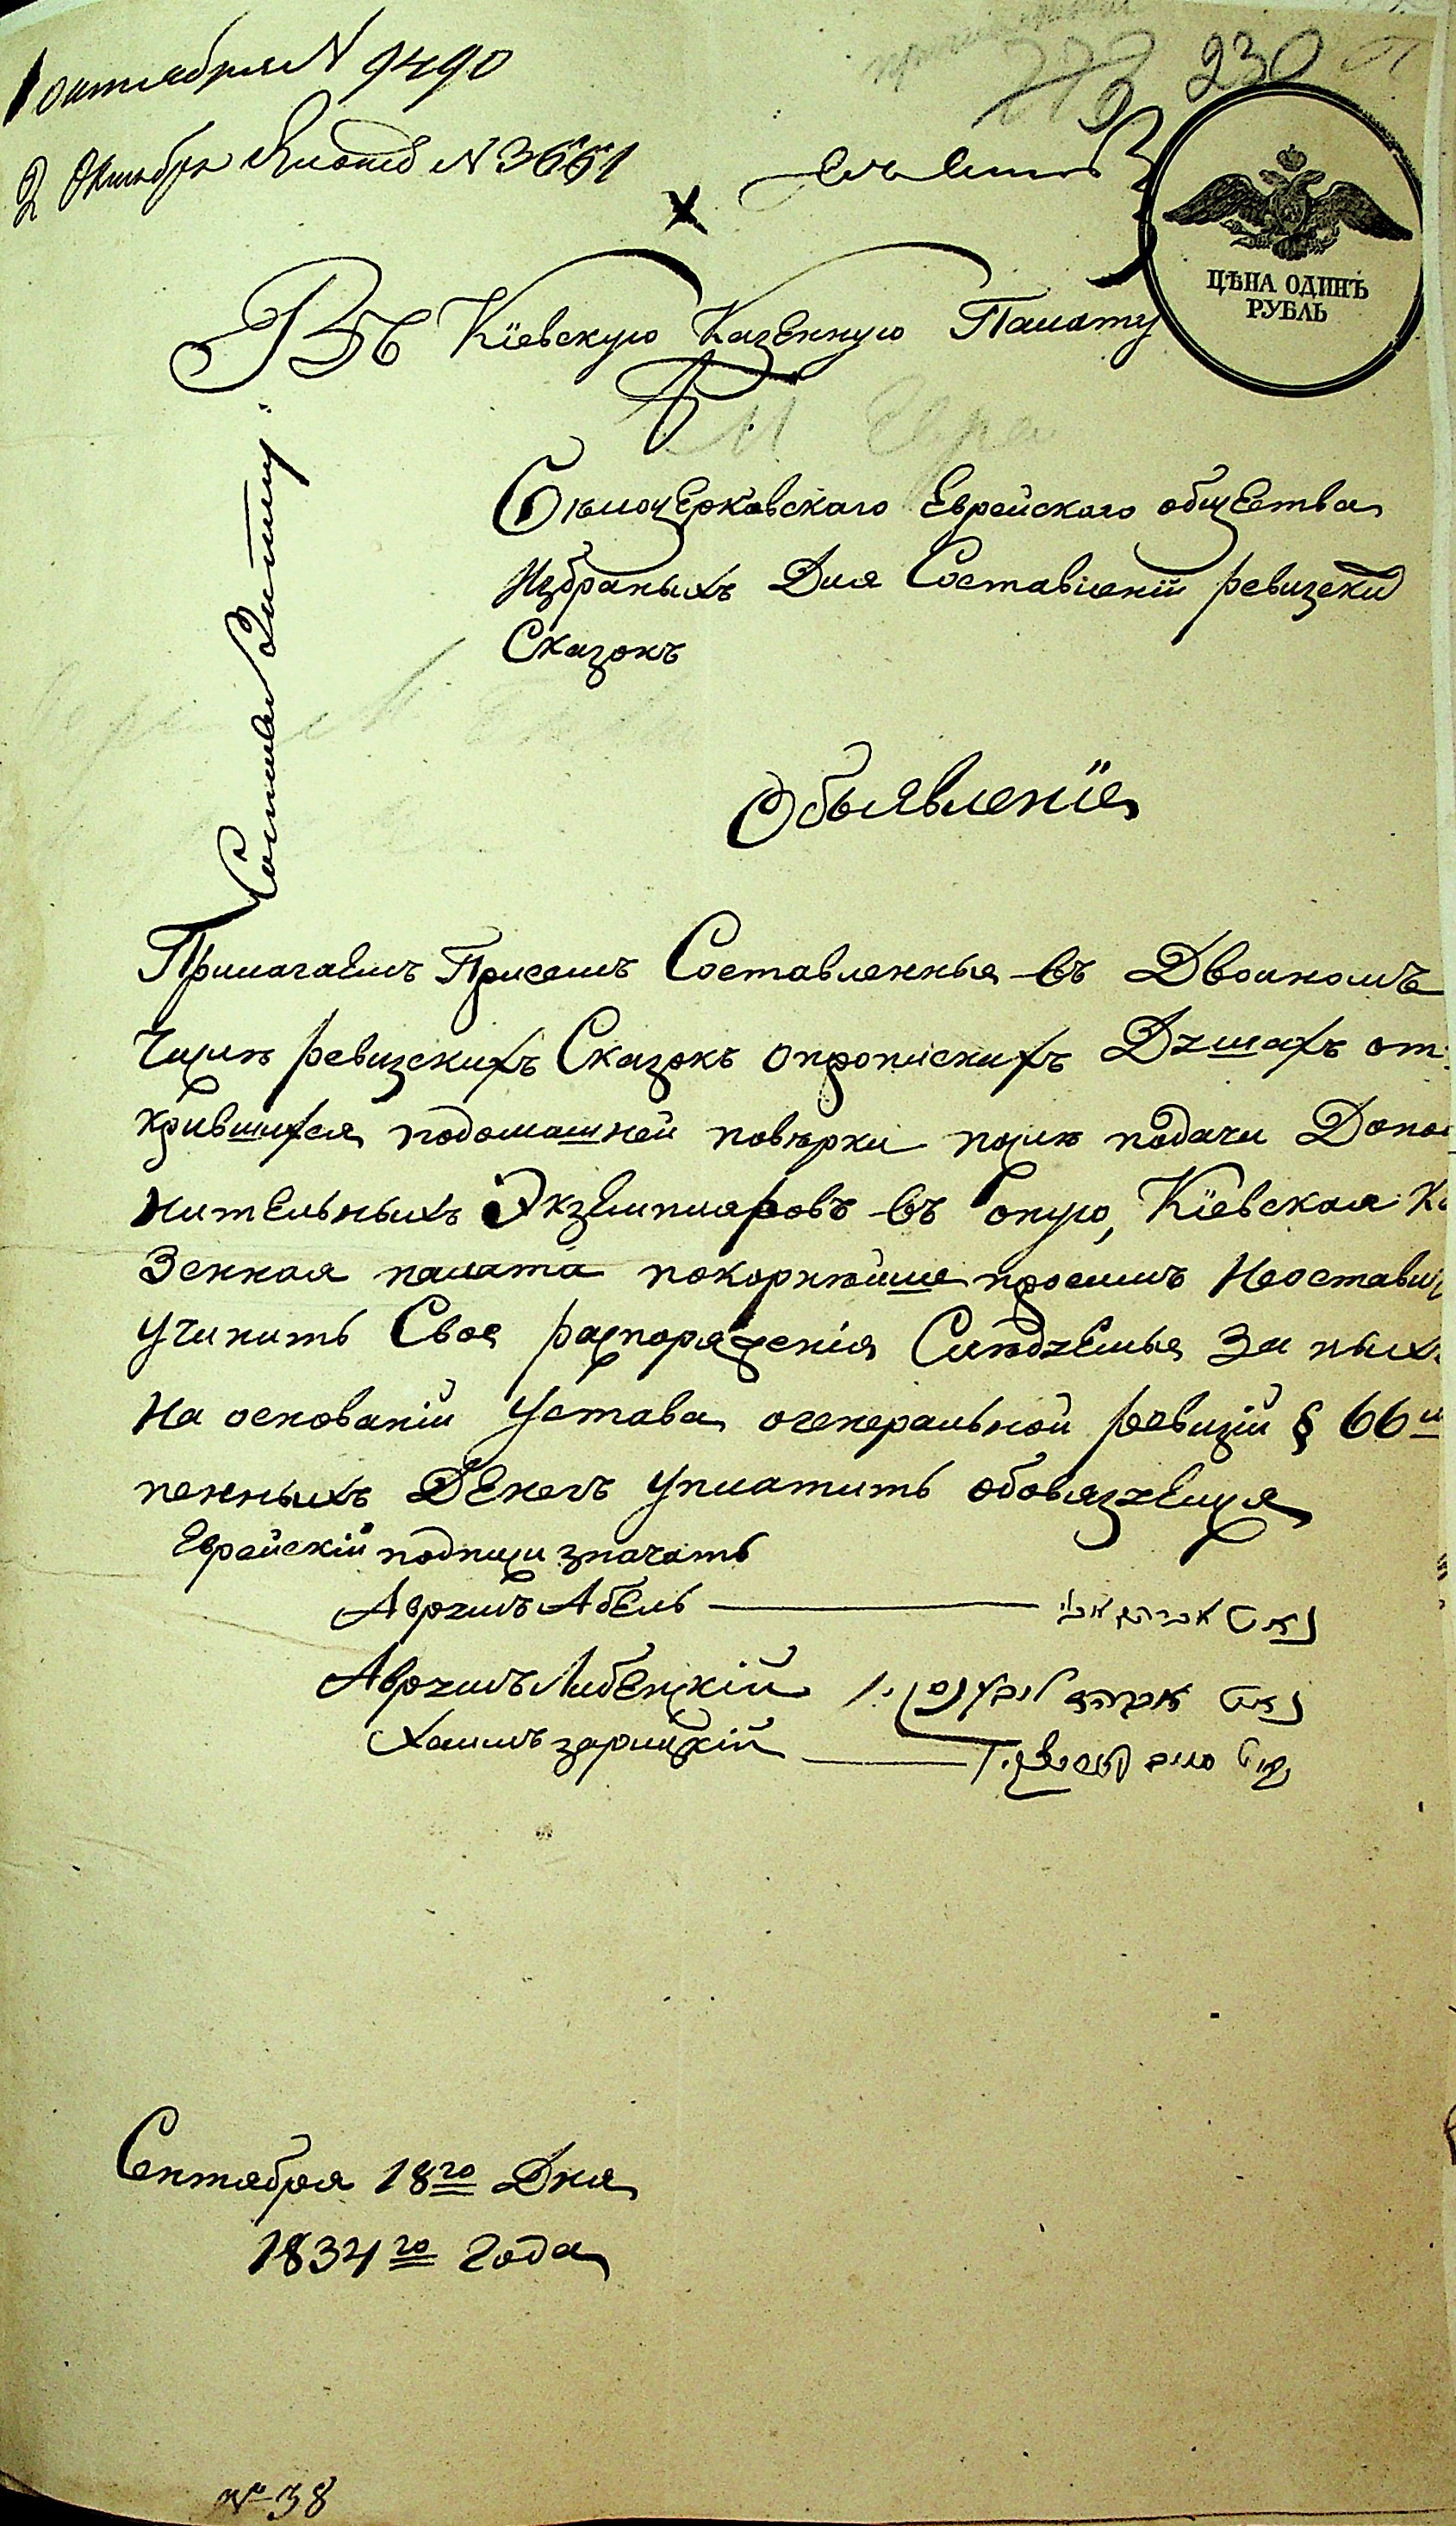 1 октября N 9490
230
2 Октября N 3661
ЦѢНА ОДИНЪ
РУБЛЬ
Въ Кіевскую Казенную Палату
Бѣлоцерковскаго Еврейского общества
Избраныхъ Для Составленій ревизски
Сказокъ
Объявленіе
Прилагаемъ Присемъ Составленные въ Двоиномъ
Числѣ ревизскихъ Сказокъ опрописних Душахъ от
крившихся подомашней повѣрки послѣ подачи Допол
нительныхъ Экземпляровъ въ опую, Кіевская Ка
Зенная палата покорнѣйше просимъ Неоставить
учинить Свое распоряженія Слѣдуемые За ныхъ
На основаніи устава огенеральной ревизіи § 66
пенныхъ Денегъ уплатить обовязуемся
Еврейскій подписи значатъ
Аврумъ Абель אברהם
Аврумъ Либецкій אברהם
Хаимъ зарицкій חיים
Сентября 18го Дня
1834го года
№ 38